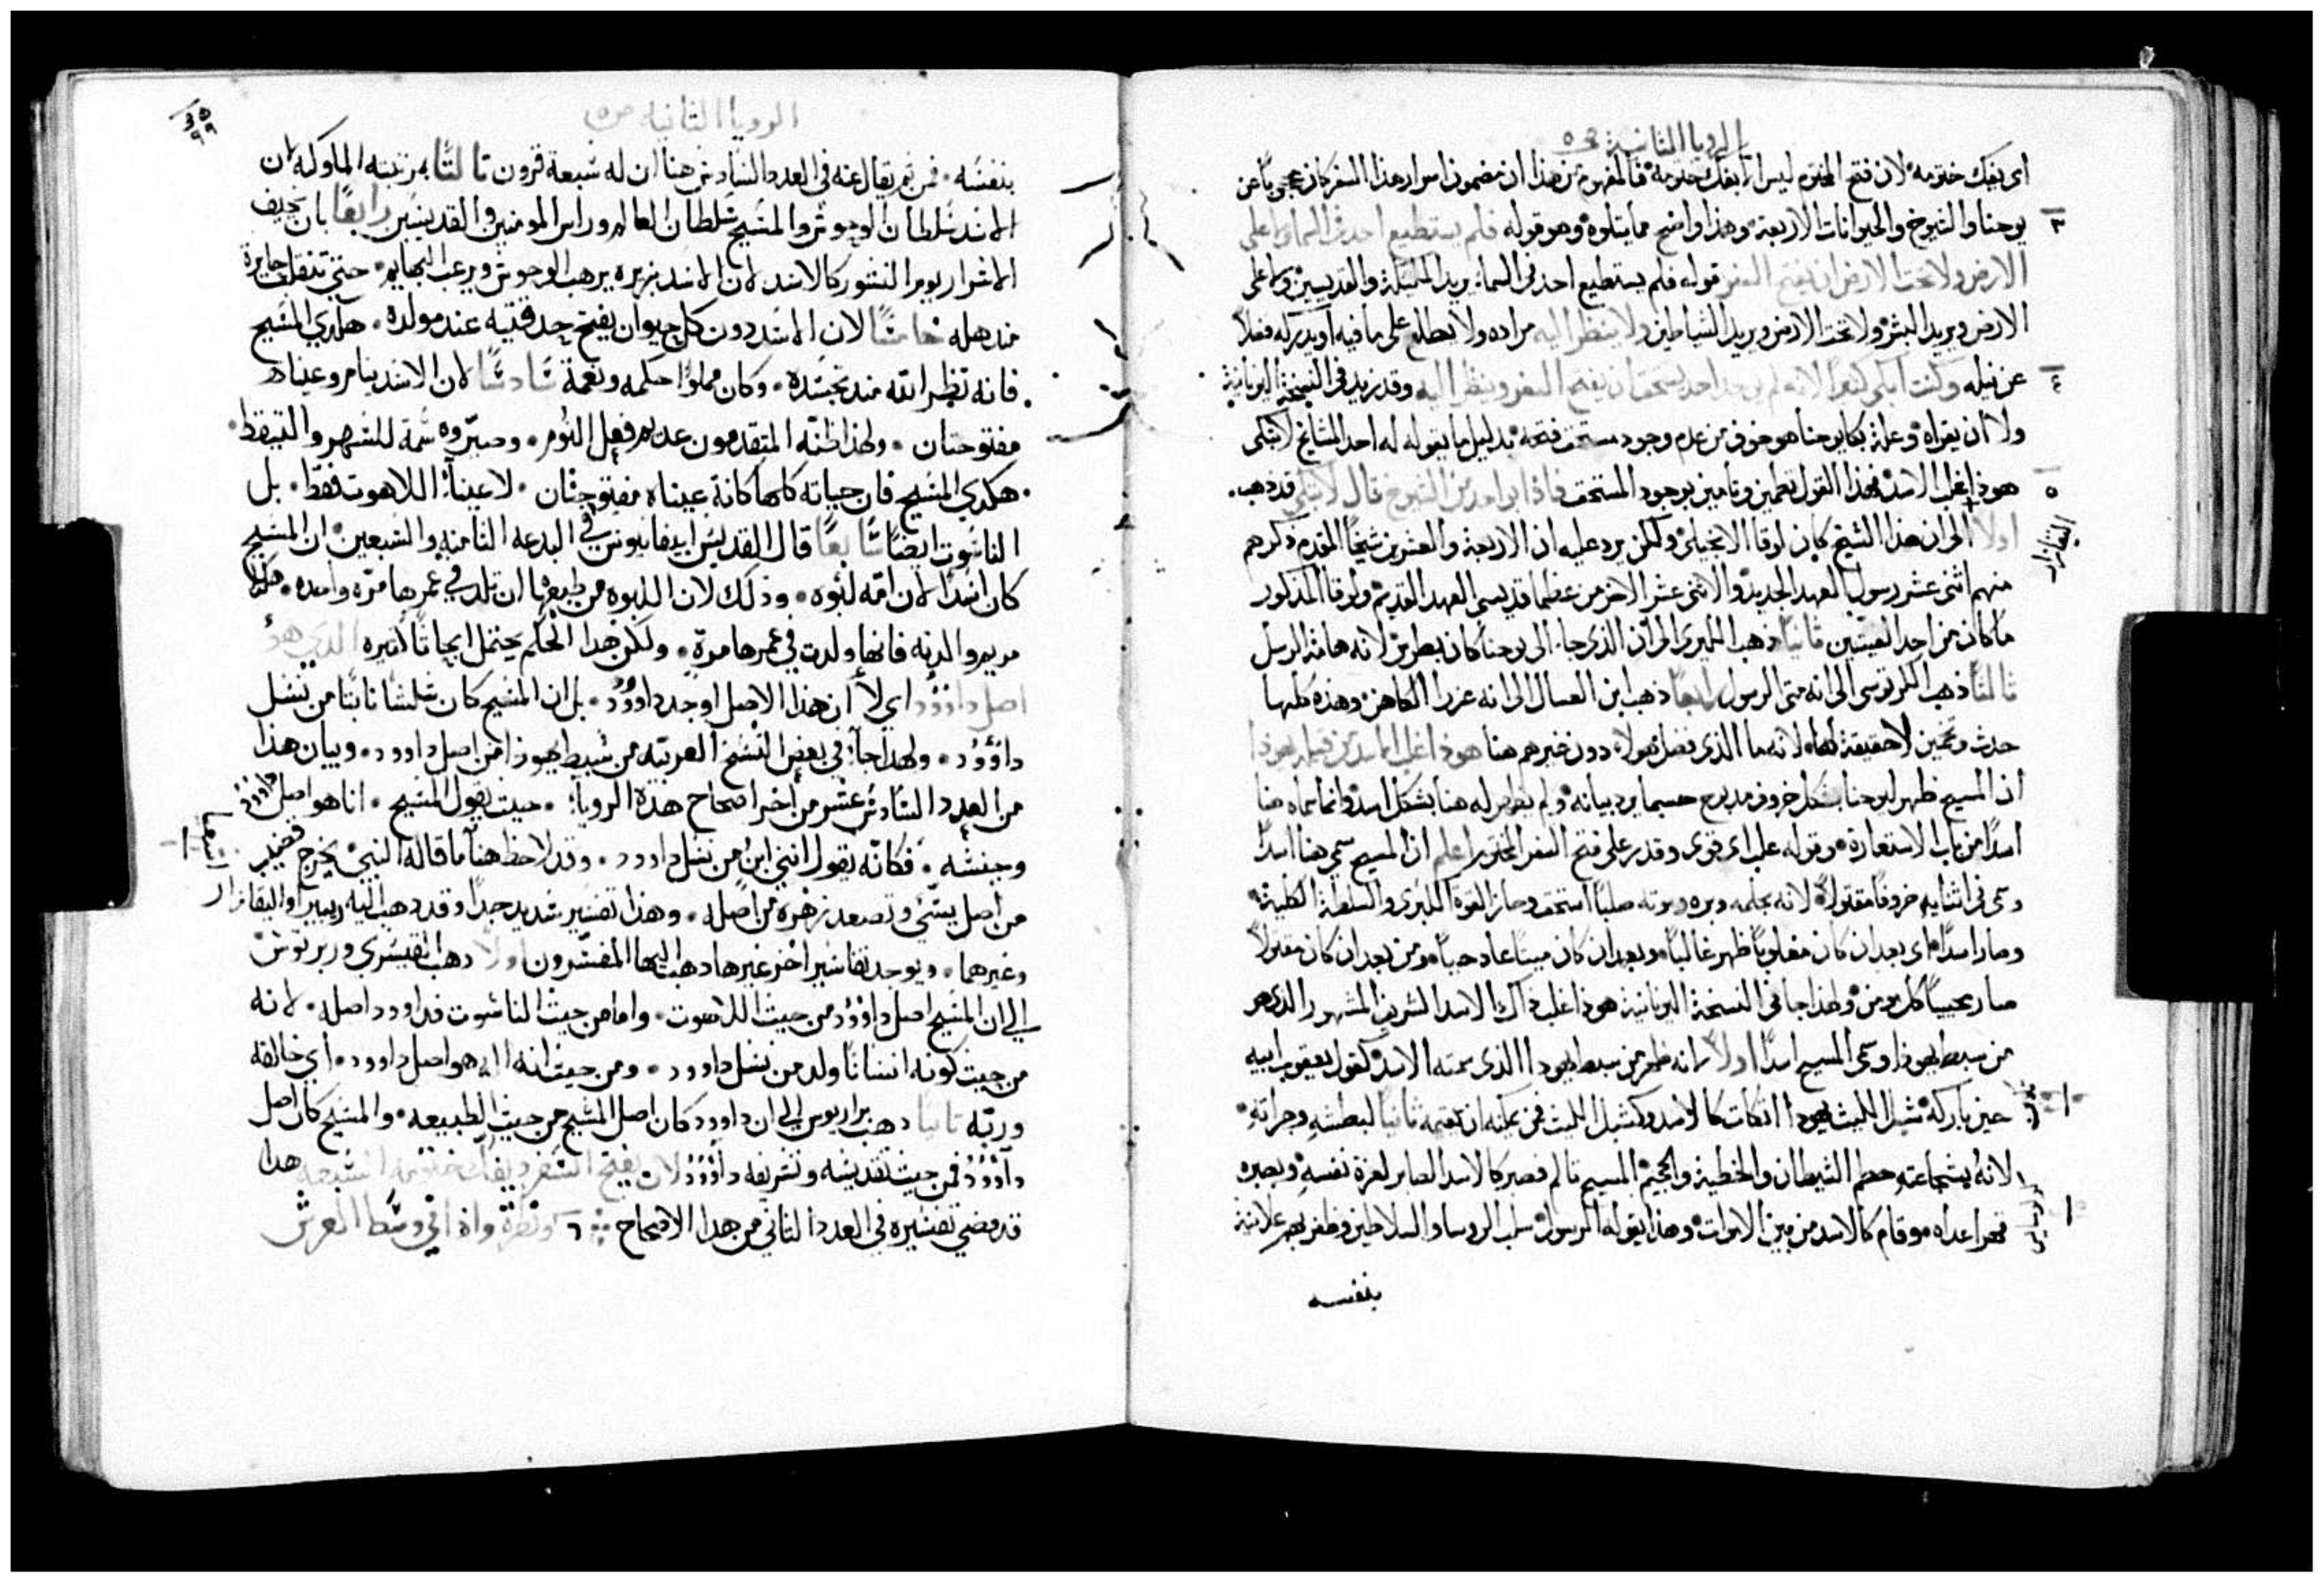 الرويا الثانية ص ٥
اى يفك ختومه لان فتح المختوم ليس الا بفك ختومه فالمفهوم من هذا ان مضمون اسرار هذا السفر كان محجوبًا عن
٣
يوحنا والشيوخ والحيوانات الاربعة وهذا واضح مما يتلوه وهو قوله فلم يستطيع احد فى السما ولا على
الارض ولا تحت الارض ان يفتح السفر قوله فلم يستطيع احد فى السما يريد الملئكة والقديسين ولا على
الارض ويريد البشر ولا تحت الارض ويريد الشياطين ولا ينظر اليه مراده ولا يطلع على ما فيه او يدركه فضلًا
٤
عن نيله وكنت ابكى كثيرًا لانه لم يوجد احد يستحق ان يفتح السفر وينظر اليه وقد زيد فى النسخة اليونانية
ولا ان يقراه وعلة بكا يوحنا هو خوفه من عدم وجود مستحق فتحه بدليل ما يقوله له احد المشايخ لا تبكى
٥
هوذا غلب الاسد فهذا القول تطمين وتامين بوجود المستحق فاذا بواحد من الشيوخ قال لا تبكى قد ذهب
اولًا الى ان هذا الشيخ كان لوقا الانجيلى ولكن يرد عليه ان الاربعة والعشرين شيخًا المقدم ذكرهم
منهم اثنى عشر رسول العهد الجديد والاثنى عشر الاخر من عظما قديسى العهد القديم ولوقا المذكور
ما كان من احد الفيتين ثانيًا ذهب الليرى الى ان الذى جا الى يوحنا كان بطرس لانه هامة الرسل
ثالثًا ذهب الكرتوسى الى انه متى الرسول رابعًا ذهب ابن العسال الى انه عزرا الكاهن وهذه كلها
حدث وتخمين لا حقيقة لها لانه ما الذى فضل هولا دون غيرهم هنا هوذا غلب الاسد من قبيلة يهوذا
ان المسيح ظهر ليوحنا بشكل خروف مذبوح حسبما يرد بيانه ولم يظهر له هنا بشكل اسد وانما سماه هنا
اسدًا من باب الاستعارة وقوله غلب اى قوى وقدر على فتح السفر المختوم اعلم ان المسيح سمى هنا اسدًا
وسمى فى اشيا خروفًا مقتولًا لانه بحلمه وبره وموته صلبًا استحق وحاز القوة الكبرى والسلطة الكلية
وصار اسدًا اى بعد ان كان مغلوبًا ظهر غالبًا وبعد ان كان ميتًا عاد حيًا ومن بعد ان كان مقتولًا
صار محييًا كل مومن ولهذا جا فى النسخة اليونانية هوذا غلب ذاك الاسد الشريف المشهور الذى هو
من سبط يهوذا وسمى المسيح اسدًا اولًا لانه ظهر من سبط يهودا الذى سمته الاسد كقول يعقوب ابيه
حين باركه شبل الليث يهودا اتكات كالاسد وكشبل الليث فمن يمكنه ان يقيمه ثانيًا لبطشه وجراته
لانه بشجاعته حطم الشيطان والخطية والجحيم المسيح تالم فصبر كالاسد الصابر لعزة نفسه وبصبره
قهر اعداه وقام كالاسد من بين الاموات وهذا يقوله الرسول سلب الروسا والسلاطين وظفر بهم علانية
بنفسه
الرويا الثانيه ص ٥
بنفسه فمن ثم يقال عنه في العدد السادس هنا ان له سبعة قرون ثالثًا برتبته الملوكيه لان
الاسد سلطان الوحوش والمسيح سلطان العالم وراس المومنين والقديسين رابعًا بان يخيف
الاشرار يوم النشور كالاسد لان الاسد بزيره يرهب الوحوش ويرعب البهايم حتى تنقلب حايرة
مندهله خامسًا لان الاسد دون كل حيوان يفتح حدقتيه عند مولده هكدي المسيح
فانه نظر الله مند تجسده وكان مملوًا حكمه ونعمة سادسًا لان الاسد ينام وعيناه
مفتوحتان ولهذا ظنه المتقدمون عدم فعل النوم وصيروه سمة للسهر والتيقظ
هكدي المسيح فان حياته كلها كانة عيناه مفتوحتان لا عينا اللاهوت فقط بل
الناسوت ايضًا سابعًا قال القديس ابيفانيوس في البدعه الثامنه والسبعين ان المسيح
كان اسدًا لان امه لبوه وذلك لان اللبوه من طبعها ان تلد في عمرها مره واحده هكذا
مريم والدته فانها ولدت في عمرها مرة ولكن هدا الحكم يحتمل ابحاثًا كثيره الدي هو
اصل داوود اي لا ان هذا الاصل اوجد داوود بل ان المسيح كان غلسًا نابتًا من نسل
داوود ولهدا جا في بعض النسخ العربيه من سبط يهوذا من اصل داوود وبيان هذا
من العدد السادس عشر من اخر اصحاح هذه الرويا حيث يقول المسيح انا هو اصل داوود
وجنسه فكانه يقول انني ابن من نسل داوود وقد لاحظ هنا ما قاله النبي يخرج قضيب
من اصل يسي وتصعد زهره من اصله وهذا تفسير سديد جدًا وقد دهب اليه ريبيرا واليقازار
وغيرهما ويوجد تفاسير اخر غيرها دهب اليها المفسرون اولًا دهب القيسري وربرتوس
الي ان المسيح اصل داوود من حيث اللاهوت واما من حيث الناسوت فداوود اصله لانه
من حيث كونه انسانًا ولد من نسل داوود ومن حيث انه اله هو اصل داوود اي خالقه
وربه ثانيًا دهب براريوس الي ان داوود كان اصل المسيح من حيث الطبيعه والمسيح كان اصل
داوود فمن حيث تقديسه وتشريفه داوود لان يفتح السفر ويفك ختومه السبعه هدا
قد مضي تفسيره في العدد الثاني من هدا الاصحاح ٦ ونظرة واذا في وسط العرش